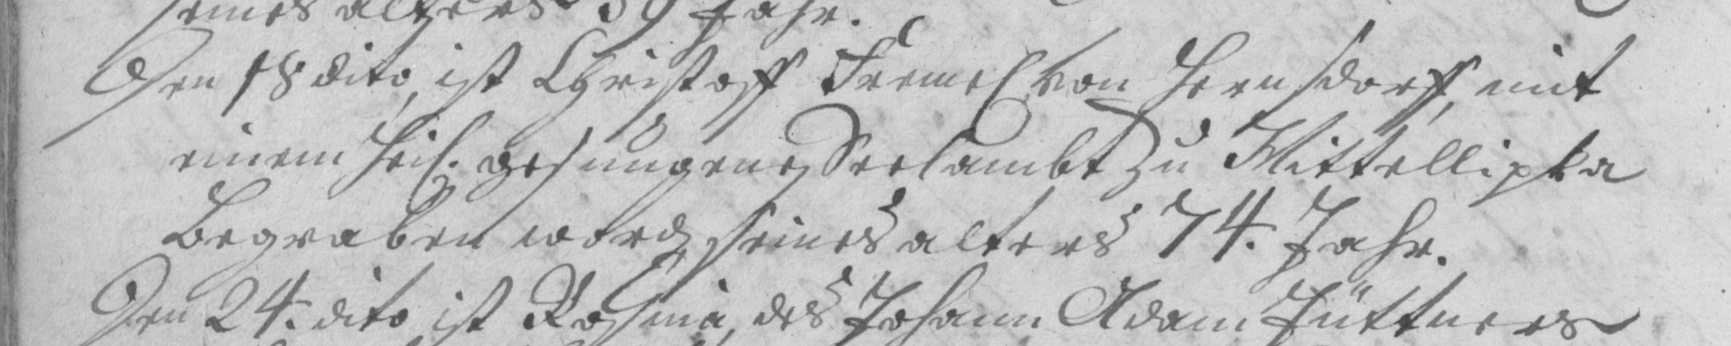 seines alters 59 Jahr.
Den 18 dito, ist Christoff Fremel von Hernsdorff, mit
einem heil. gesungenen Seelambt zu Mittellipka
begraben word, seines alters 74. Jahr.
Den 24. dito ist Rosina, des Johann Adam Jüttners